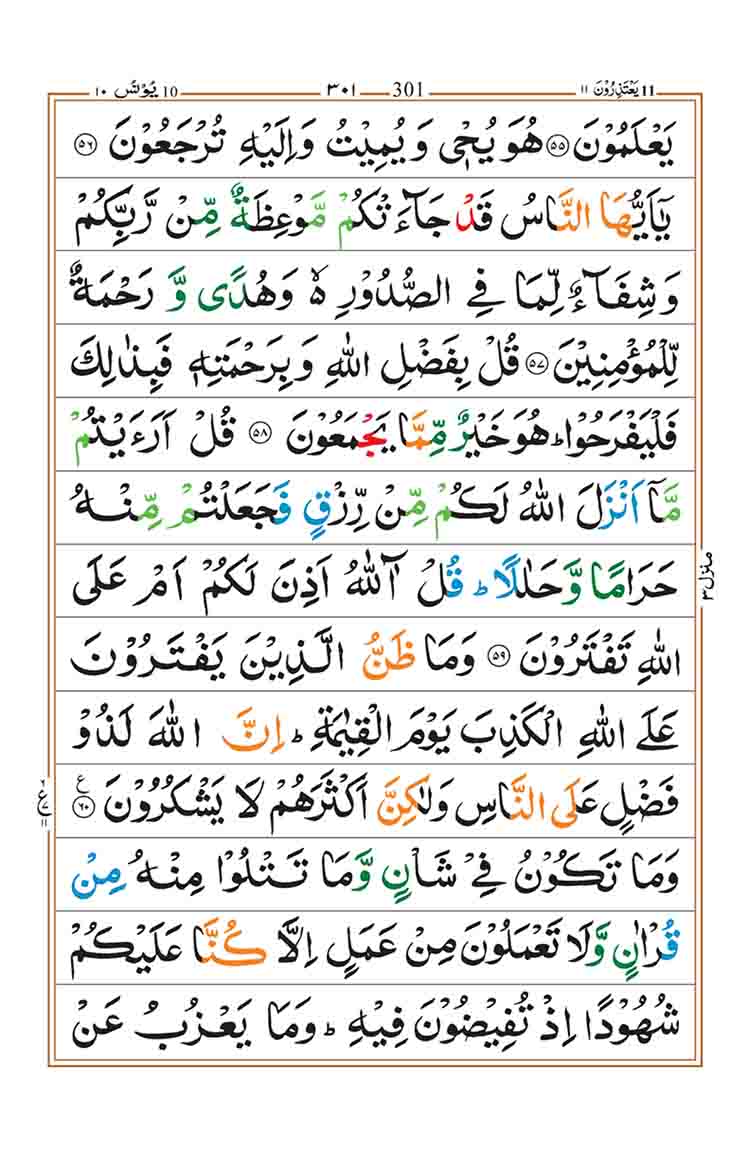 ١٠ يُوْنُس 10 ٣٠١ 301 ١١ يَعْتَذِرُوْنَ 11
يَعْلَمُوْنَ ﴿٥٥﴾ هُوَ يُحْيٖ وَ يُمِيْتُ وَ اِلَيْهِ تُرْجَعُوْنَ ﴿٥٦﴾
يٰۤاَيُّهَا النَّاسُ قَدْ جَآءَتْكُمْ مَّوْعِظَةٌ مِّنْ رَّبِّكُمْ
وَ شِفَآءٌ لِّمَا فِي الصُّدُوْرِ ۙ۬ وَ هُدًى وَّ رَحْمَةٌ
لِّلْمُؤْمِنِيْنَ ﴿٥٧﴾ قُلْ بِفَضْلِ اللّٰهِ وَ بِرَحْمَتِهٖ فَبِذٰلِكَ
فَلْيَفْرَحُوْا ؕ هُوَ خَيْرٌ مِّمَّا يَجْمَعُوْنَ ﴿٥٨﴾ قُلْ اَرَءَيْتُمْ
مَّاۤ اَنْزَلَ اللّٰهُ لَكُمْ مِّنْ رِّزْقٍ فَجَعَلْتُمْ مِّنْهُ
حَرَامًا وَّ حَلٰلًا ؕ قُلْ آٰللّٰهُ اَذِنَ لَكُمْ اَمْ عَلَى
اللّٰهِ تَفْتَرُوْنَ ﴿٥٩﴾ وَ مَا ظَنُّ الَّذِيْنَ يَفْتَرُوْنَ
عَلَى اللّٰهِ الْكَذِبَ يَوْمَ الْقِيٰمَةِ ؕ اِنَّ اللّٰهَ لَذُوْ
فَضْلٍ عَلَى النَّاسِ وَلٰكِنَّ اَكْثَرَهُمْ لَا يَشْكُرُوْنَ ﴿٦٠﴾ ع
وَ مَا تَكُوْنُ فِيْ شَاْنٍ وَّ مَا تَتْلُوْا مِنْهُ مِنْ
قُرْاٰنٍ وَّ لَا تَعْمَلُوْنَ مِنْ عَمَلٍ اِلَّا كُنَّا عَلَيْكُمْ
شُهُوْدًا اِذْ تُفِيْضُوْنَ فِيْهِ ؕ وَ مَا يَعْزُبُ عَنْ
منزل ٣